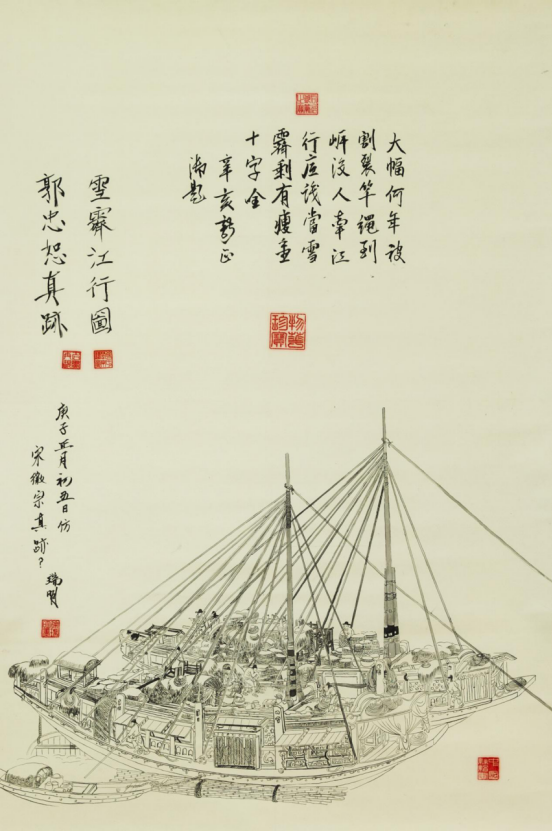 大幅何年被
割裂竿繩到
岸没人牽江
行底識當雪
霽剩有瘦金
十字全
辛亥新正
御題
雪霽江行圖
郭忠恕真跡
庚子正月初五日仿
宋徽宗真跡?